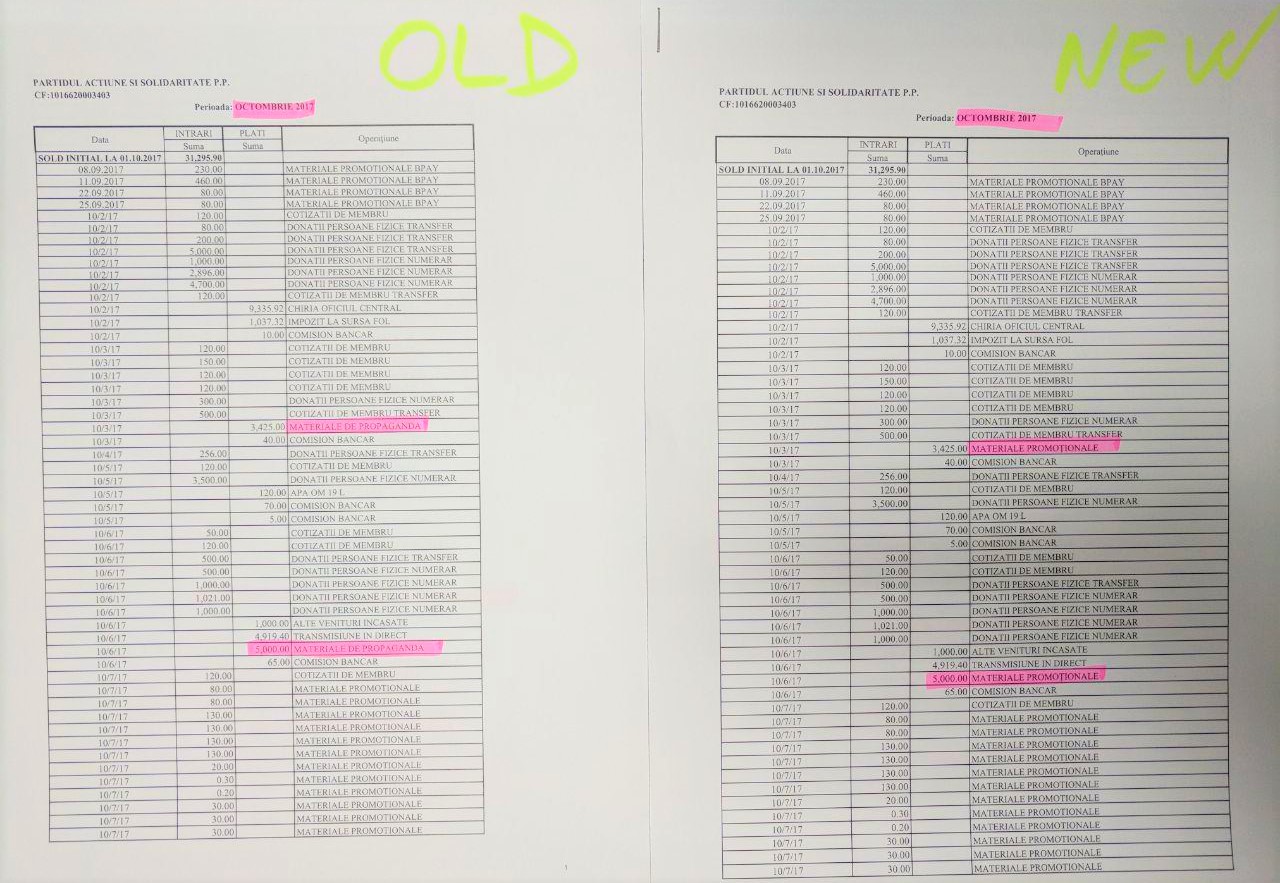 OLD
PARTIDUL ACTIUNE SI SOLIDARITATE P.P.
CF:1016620003403
Perioada: OCTOMBRIE 2017
Data INTRARI PLATI Operațiune
Suma Suma
SOLD INITIAL LA 01.10.2017 31,295.90
08.09.2017 230.00 MATERIALE PROMOTIONALE BPAY
11.09.2017 460.00 MATERIALE PROMOTIONALE BPAY
22.09.2017 80.00 MATERIALE PROMOTIONALE BPAY
25.09.2017 80.00 MATERIALE PROMOTIONALE BPAY
10/2/17 120.00 COTIZATII DE MEMBRU
10/2/17 80.00 DONATII PERSOANE FIZICE TRANSFER
10/2/17 200.00 DONATII PERSOANE FIZICE TRANSFER
10/2/17 5,000.00 DONATII PERSOANE FIZICE TRANSFER
10/2/17 1,000.00 DONATII PERSOANE FIZICE NUMERAR
10/2/17 2,896.00 DONATII PERSOANE FIZICE NUMERAR
10/2/17 4,700.00 DONATII PERSOANE FIZICE NUMERAR
10/2/17 120.00 COTIZATII DE MEMBRU TRANSFER
10/2/17 9,335.92 CHIRIA OFICIUL CENTRAL
10/2/17 1,037.32 IMPOZIT LA SURSA FOL
10/2/17 10.00 COMISION BANCAR
10/3/17 120.00 COTIZATII DE MEMBRU
10/3/17 150.00 COTIZATII DE MEMBRU
10/3/17 120.00 COTIZATII DE MEMBRU
10/3/17 120.00 COTIZATII DE MEMBRU
10/3/17 300.00 DONATII PERSOANE FIZICE NUMERAR
10/3/17 500.00 COTIZATII DE MEMBRU TRANSFER
10/3/17 3,425.00 MATERIALE DE PROPAGANDA
10/3/17 40.00 COMISION BANCAR
10/4/17 256.00 DONATII PERSOANE FIZICE TRANSFER
10/5/17 120.00 COTIZATII DE MEMBRU
10/5/17 3,500.00 DONATII PERSOANE FIZICE NUMERAR
10/5/17 120.00 APA OM 19 L
10/5/17 70.00 COMISION BANCAR
10/5/17 5.00 COMISION BANCAR
10/6/17 50.00 COTIZATII DE MEMBRU
10/6/17 120.00 COTIZATII DE MEMBRU
10/6/17 500.00 DONATII PERSOANE FIZICE TRANSFER
10/6/17 500.00 DONATII PERSOANE FIZICE NUMERAR
10/6/17 1,000.00 DONATII PERSOANE FIZICE NUMERAR
10/6/17 1,021.00 DONATII PERSOANE FIZICE NUMERAR
10/6/17 1,000.00 DONATII PERSOANE FIZICE NUMERAR
10/6/17 1,000.00 ALTE VENITURI INCASATE
10/6/17 4,919.40 TRANSMISIUNE IN DIRECT
10/6/17 5,000.00 MATERIALE DE PROPAGANDA
10/6/17 65.00 COMISION BANCAR
10/7/17 120.00 COTIZATII DE MEMBRU
10/7/17 80.00 MATERIALE PROMOTIONALE
10/7/17 80.00 MATERIALE PROMOTIONALE
10/7/17 130.00 MATERIALE PROMOTIONALE
10/7/17 130.00 MATERIALE PROMOTIONALE
10/7/17 130.00 MATERIALE PROMOTIONALE
10/7/17 130.00 MATERIALE PROMOTIONALE
10/7/17 20.00 MATERIALE PROMOTIONALE
10/7/17 0.30 MATERIALE PROMOTIONALE
10/7/17 0.20 MATERIALE PROMOTIONALE
10/7/17 30.00 MATERIALE PROMOTIONALE
10/7/17 30.00 MATERIALE PROMOTIONALE
10/7/17 30.00 MATERIALE PROMOTIONALE
1
NEW
PARTIDUL ACTIUNE SI SOLIDARITATE P.P.
CF:1016620003403
Perioada: OCTOMBRIE 2017
Data INTRARI PLATI Operațiune
Suma Suma
SOLD INITIAL LA 01.10.2017 31,295.90
08.09.2017 230.00 MATERIALE PROMOTIONALE BPAY
11.09.2017 460.00 MATERIALE PROMOTIONALE BPAY
22.09.2017 80.00 MATERIALE PROMOTIONALE BPAY
25.09.2017 80.00 MATERIALE PROMOTIONALE BPAY
10/2/17 120.00 COTIZATII DE MEMBRU
10/2/17 80.00 DONATII PERSOANE FIZICE TRANSFER
10/2/17 200.00 DONATII PERSOANE FIZICE TRANSFER
10/2/17 5,000.00 DONATII PERSOANE FIZICE TRANSFER
10/2/17 1,000.00 DONATII PERSOANE FIZICE NUMERAR
10/2/17 2,896.00 DONATII PERSOANE FIZICE NUMERAR
10/2/17 4,700.00 DONATII PERSOANE FIZICE NUMERAR
10/2/17 120.00 COTIZATII DE MEMBRU TRANSFER
10/2/17 9,335.92 CHIRIA OFICIUL CENTRAL
10/2/17 1,037.32 IMPOZIT LA SURSA FOL
10/2/17 10.00 COMISION BANCAR
10/3/17 120.00 COTIZATII DE MEMBRU
10/3/17 150.00 COTIZATII DE MEMBRU
10/3/17 120.00 COTIZATII DE MEMBRU
10/3/17 120.00 COTIZATII DE MEMBRU
10/3/17 300.00 DONATII PERSOANE FIZICE NUMERAR
10/3/17 500.00 COTIZATII DE MEMBRU TRANSFER
10/3/17 3,425.00 MATERIALE PROMOȚIONALE
10/3/17 40.00 COMISION BANCAR
10/4/17 256.00 DONATII PERSOANE FIZICE TRANSFER
10/5/17 120.00 COTIZATII DE MEMBRU
10/5/17 3,500.00 DONATII PERSOANE FIZICE NUMERAR
10/5/17 120.00 APA OM 19 L
10/5/17 70.00 COMISION BANCAR
10/5/17 5.00 COMISION BANCAR
10/6/17 50.00 COTIZATII DE MEMBRU
10/6/17 120.00 COTIZATII DE MEMBRU
10/6/17 500.00 DONATII PERSOANE FIZICE TRANSFER
10/6/17 500.00 DONATII PERSOANE FIZICE NUMERAR
10/6/17 1,000.00 DONATII PERSOANE FIZICE NUMERAR
10/6/17 1,021.00 DONATII PERSOANE FIZICE NUMERAR
10/6/17 1,000.00 DONATII PERSOANE FIZICE NUMERAR
10/6/17 1,000.00 ALTE VENITURI INCASATE
10/6/17 4,919.40 TRANSMISIUNE IN DIRECT
10/6/17 5,000.00 MATERIALE PROMOȚIONALE
10/6/17 65.00 COMISION BANCAR
10/7/17 120.00 COTIZATII DE MEMBRU
10/7/17 80.00 MATERIALE PROMOTIONALE
10/7/17 80.00 MATERIALE PROMOTIONALE
10/7/17 130.00 MATERIALE PROMOTIONALE
10/7/17 130.00 MATERIALE PROMOTIONALE
10/7/17 130.00 MATERIALE PROMOTIONALE
10/7/17 130.00 MATERIALE PROMOTIONALE
10/7/17 20.00 MATERIALE PROMOTIONALE
10/7/17 0.30 MATERIALE PROMOTIONALE
10/7/17 0.20 MATERIALE PROMOTIONALE
10/7/17 30.00 MATERIALE PROMOTIONALE
10/7/17 30.00 MATERIALE PROMOTIONALE
10/7/17 30.00 MATERIALE PROMOTIONALE